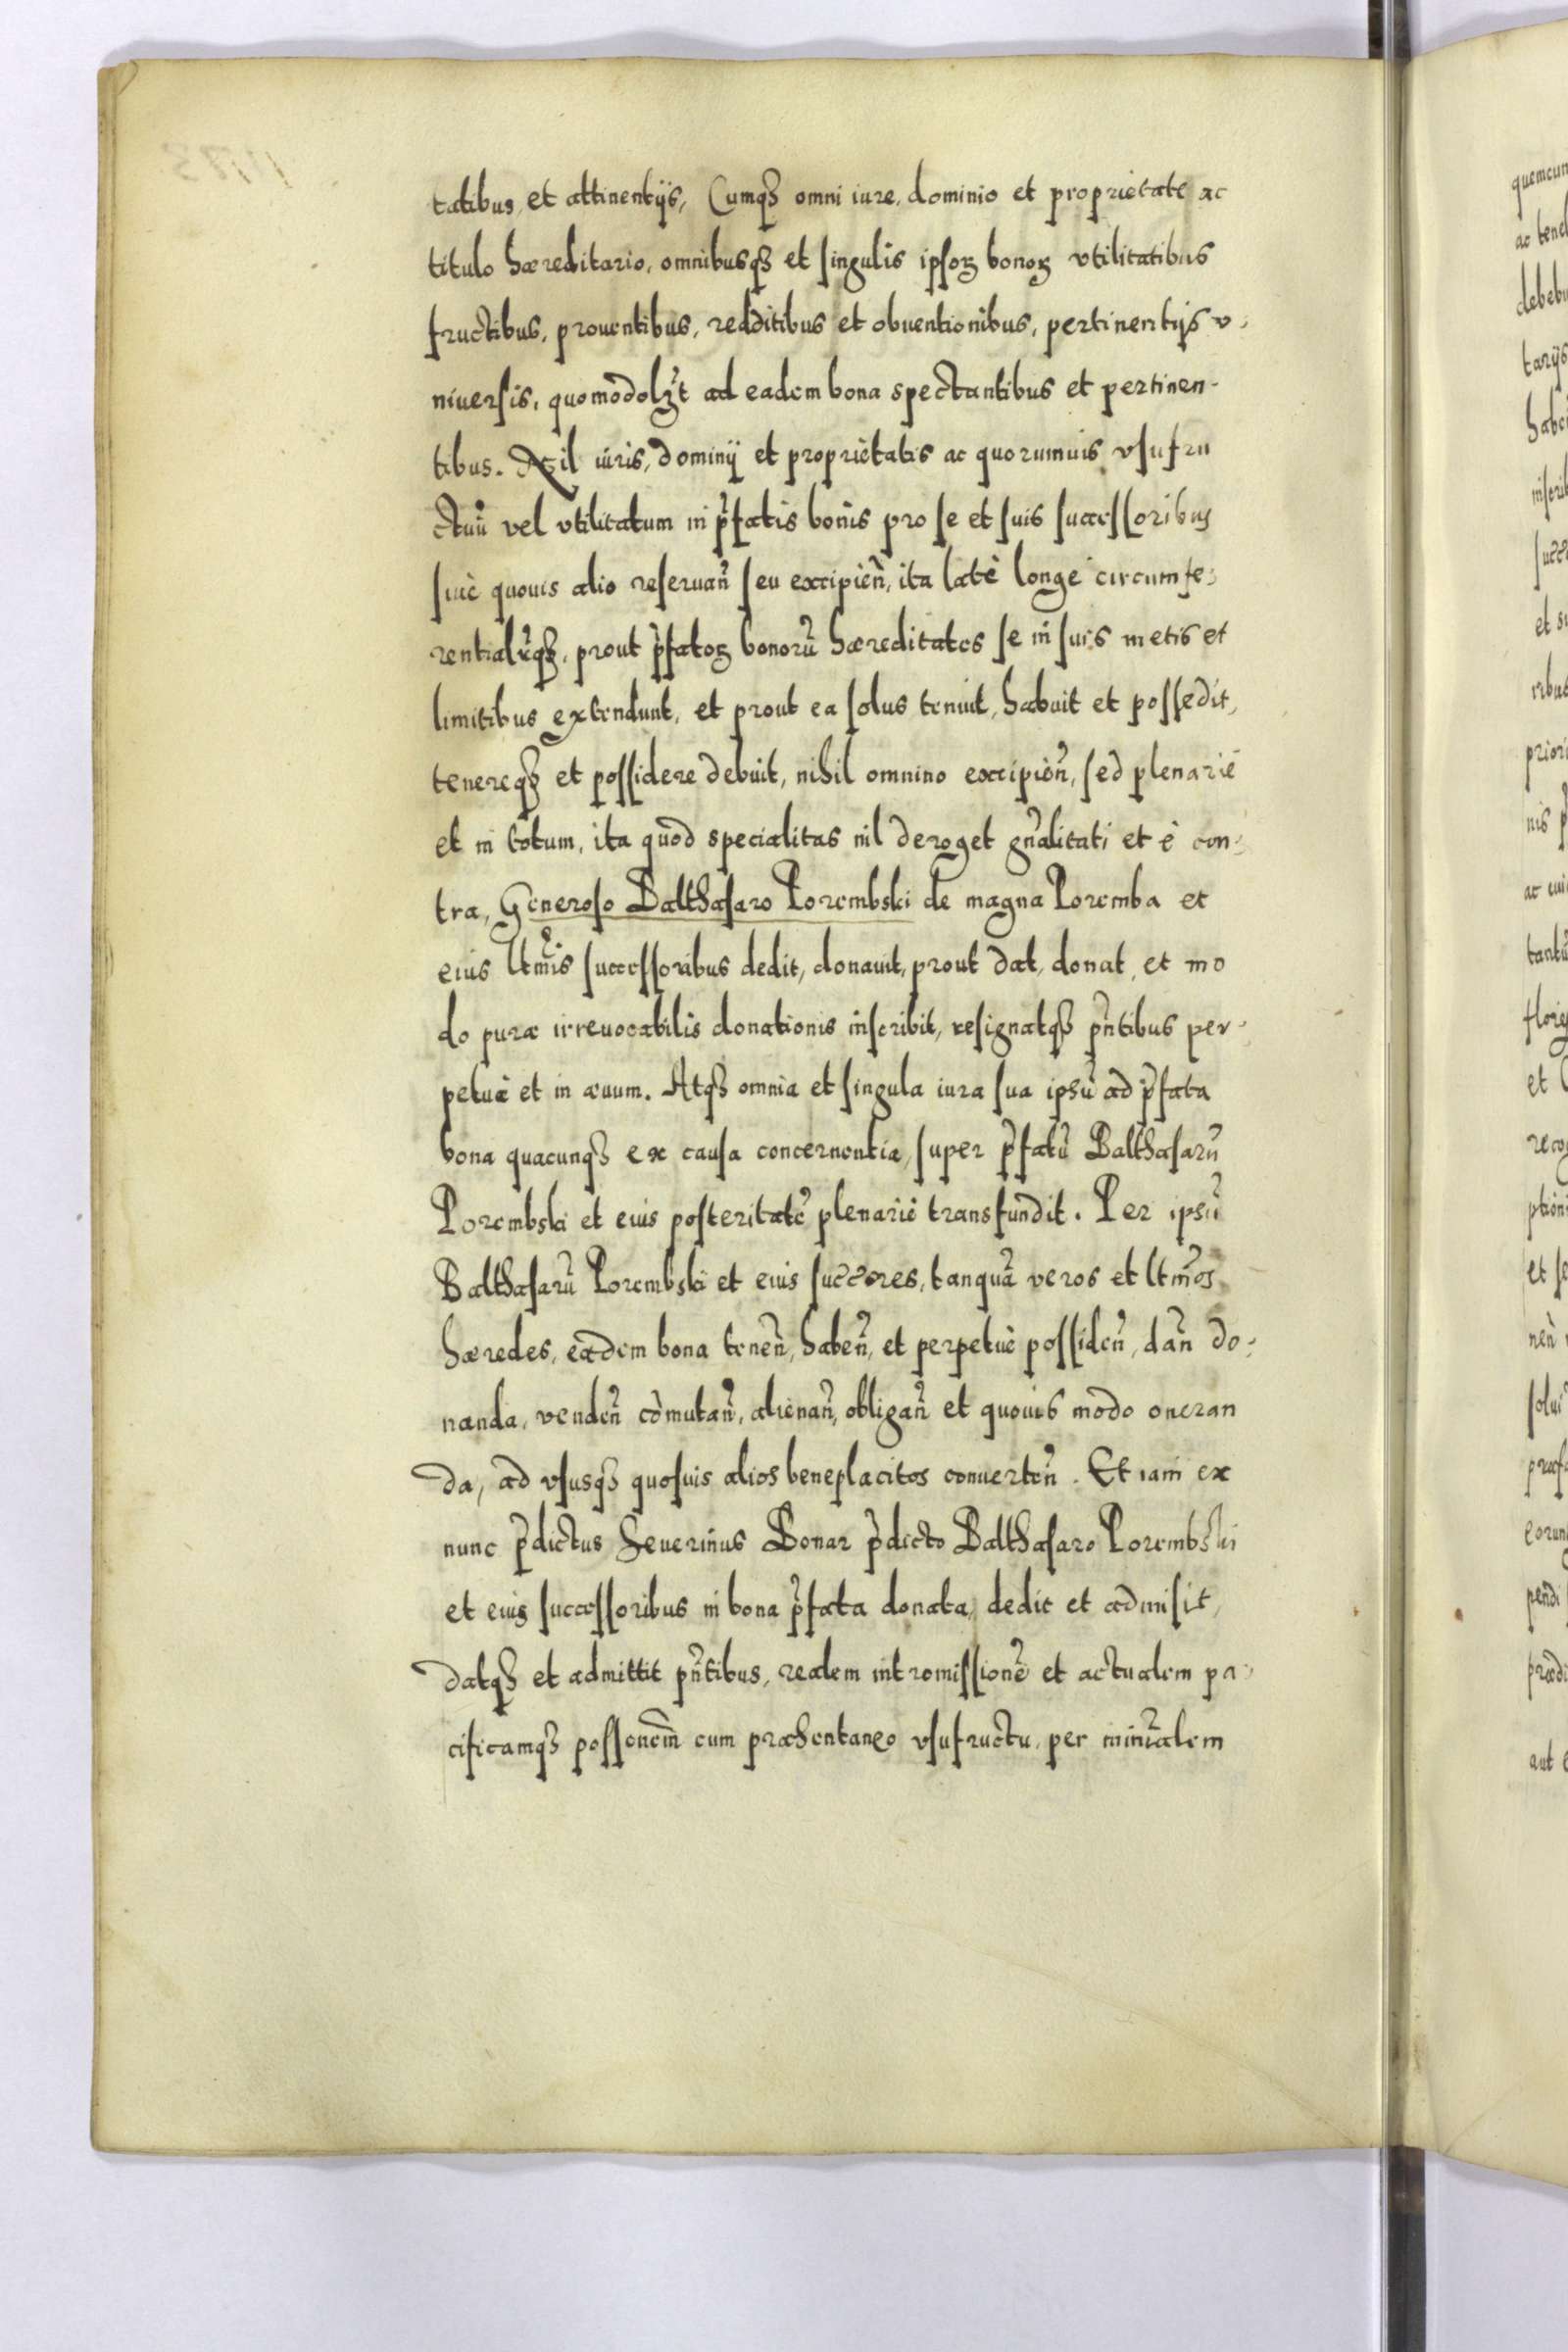 tatibus, et attinentijs, Cumqꝫ omni iure, dominio et proprietate ac
titulo hæreditario, omnibusqꝫ et singulis ipsoꝝ bonoꝝ vtilitatibus
fructibus, prouentibus, redditibus et obuentionibus, pertinentijs v-
niuersis, quomodolꝫt ad eadem bona spectantibus et pertinen-
tibus. Nil iuris, dominij et proprietatis ac quorumuis vsufru
ctuũ vel vtilitatum in p̃fatis bonis pro se et suis successoribus
siuè quouis alio reseruañ seu excipieñ, ita latè longè circumfe-
rentialr̃qꝫ, prout p̃fatoꝝ bonorũ hæreditates se in suis metis et
limitibus extendunt, et prout ea solus tenuit, habuit et possedit,
tenereqꝫ et possidere debuit, nihil omnino excipieñ, sed plenariè
et in totum, ita quod specialitas nil deroget gñalitati et è con-
tra, Generoso Balthasaro Porembski de magna Poremba et
eius ltm̃is successoribus dedit, donauit, prout dat, donat, et mo
do puræ irreuocabilis donationis inscribit, resignatqꝫ pñtibus per-
petuè et in æuum. Atqꝫ omnia et singula iura sua ipsũ ad p̃fata
bona quacunqꝫ ex causa concernentia, super p̃fatũ Balthasarũ
Porembski et eius posteritatẽ plenariè transfundit. Per ipsũ
Balthasarũ Porembski et eius succ̃ores, tanquã veros et ltm̃os
hæredes, eadem bona teneñ, habeñ, et perpetuè possideñ, dañ do-
nanda, vendeñ com̃utañ, alienañ, obligañ et quouis modo oneran
da, ad vsusqꝫ quosuis alios beneplacitos conuerteñ. Et iam ex
nunc p̃dictus Seuerinus Bonar p̃dicto Balthasaro Porembski
et eius successoribus in bona p̃fata donata, dedit et admisit,
datqꝫ et admittit pñtibus, realem intromissionẽ et actualem pa-
cificamqꝫ possẽonem cum præhentaneo vsufructu, per minr̃alem